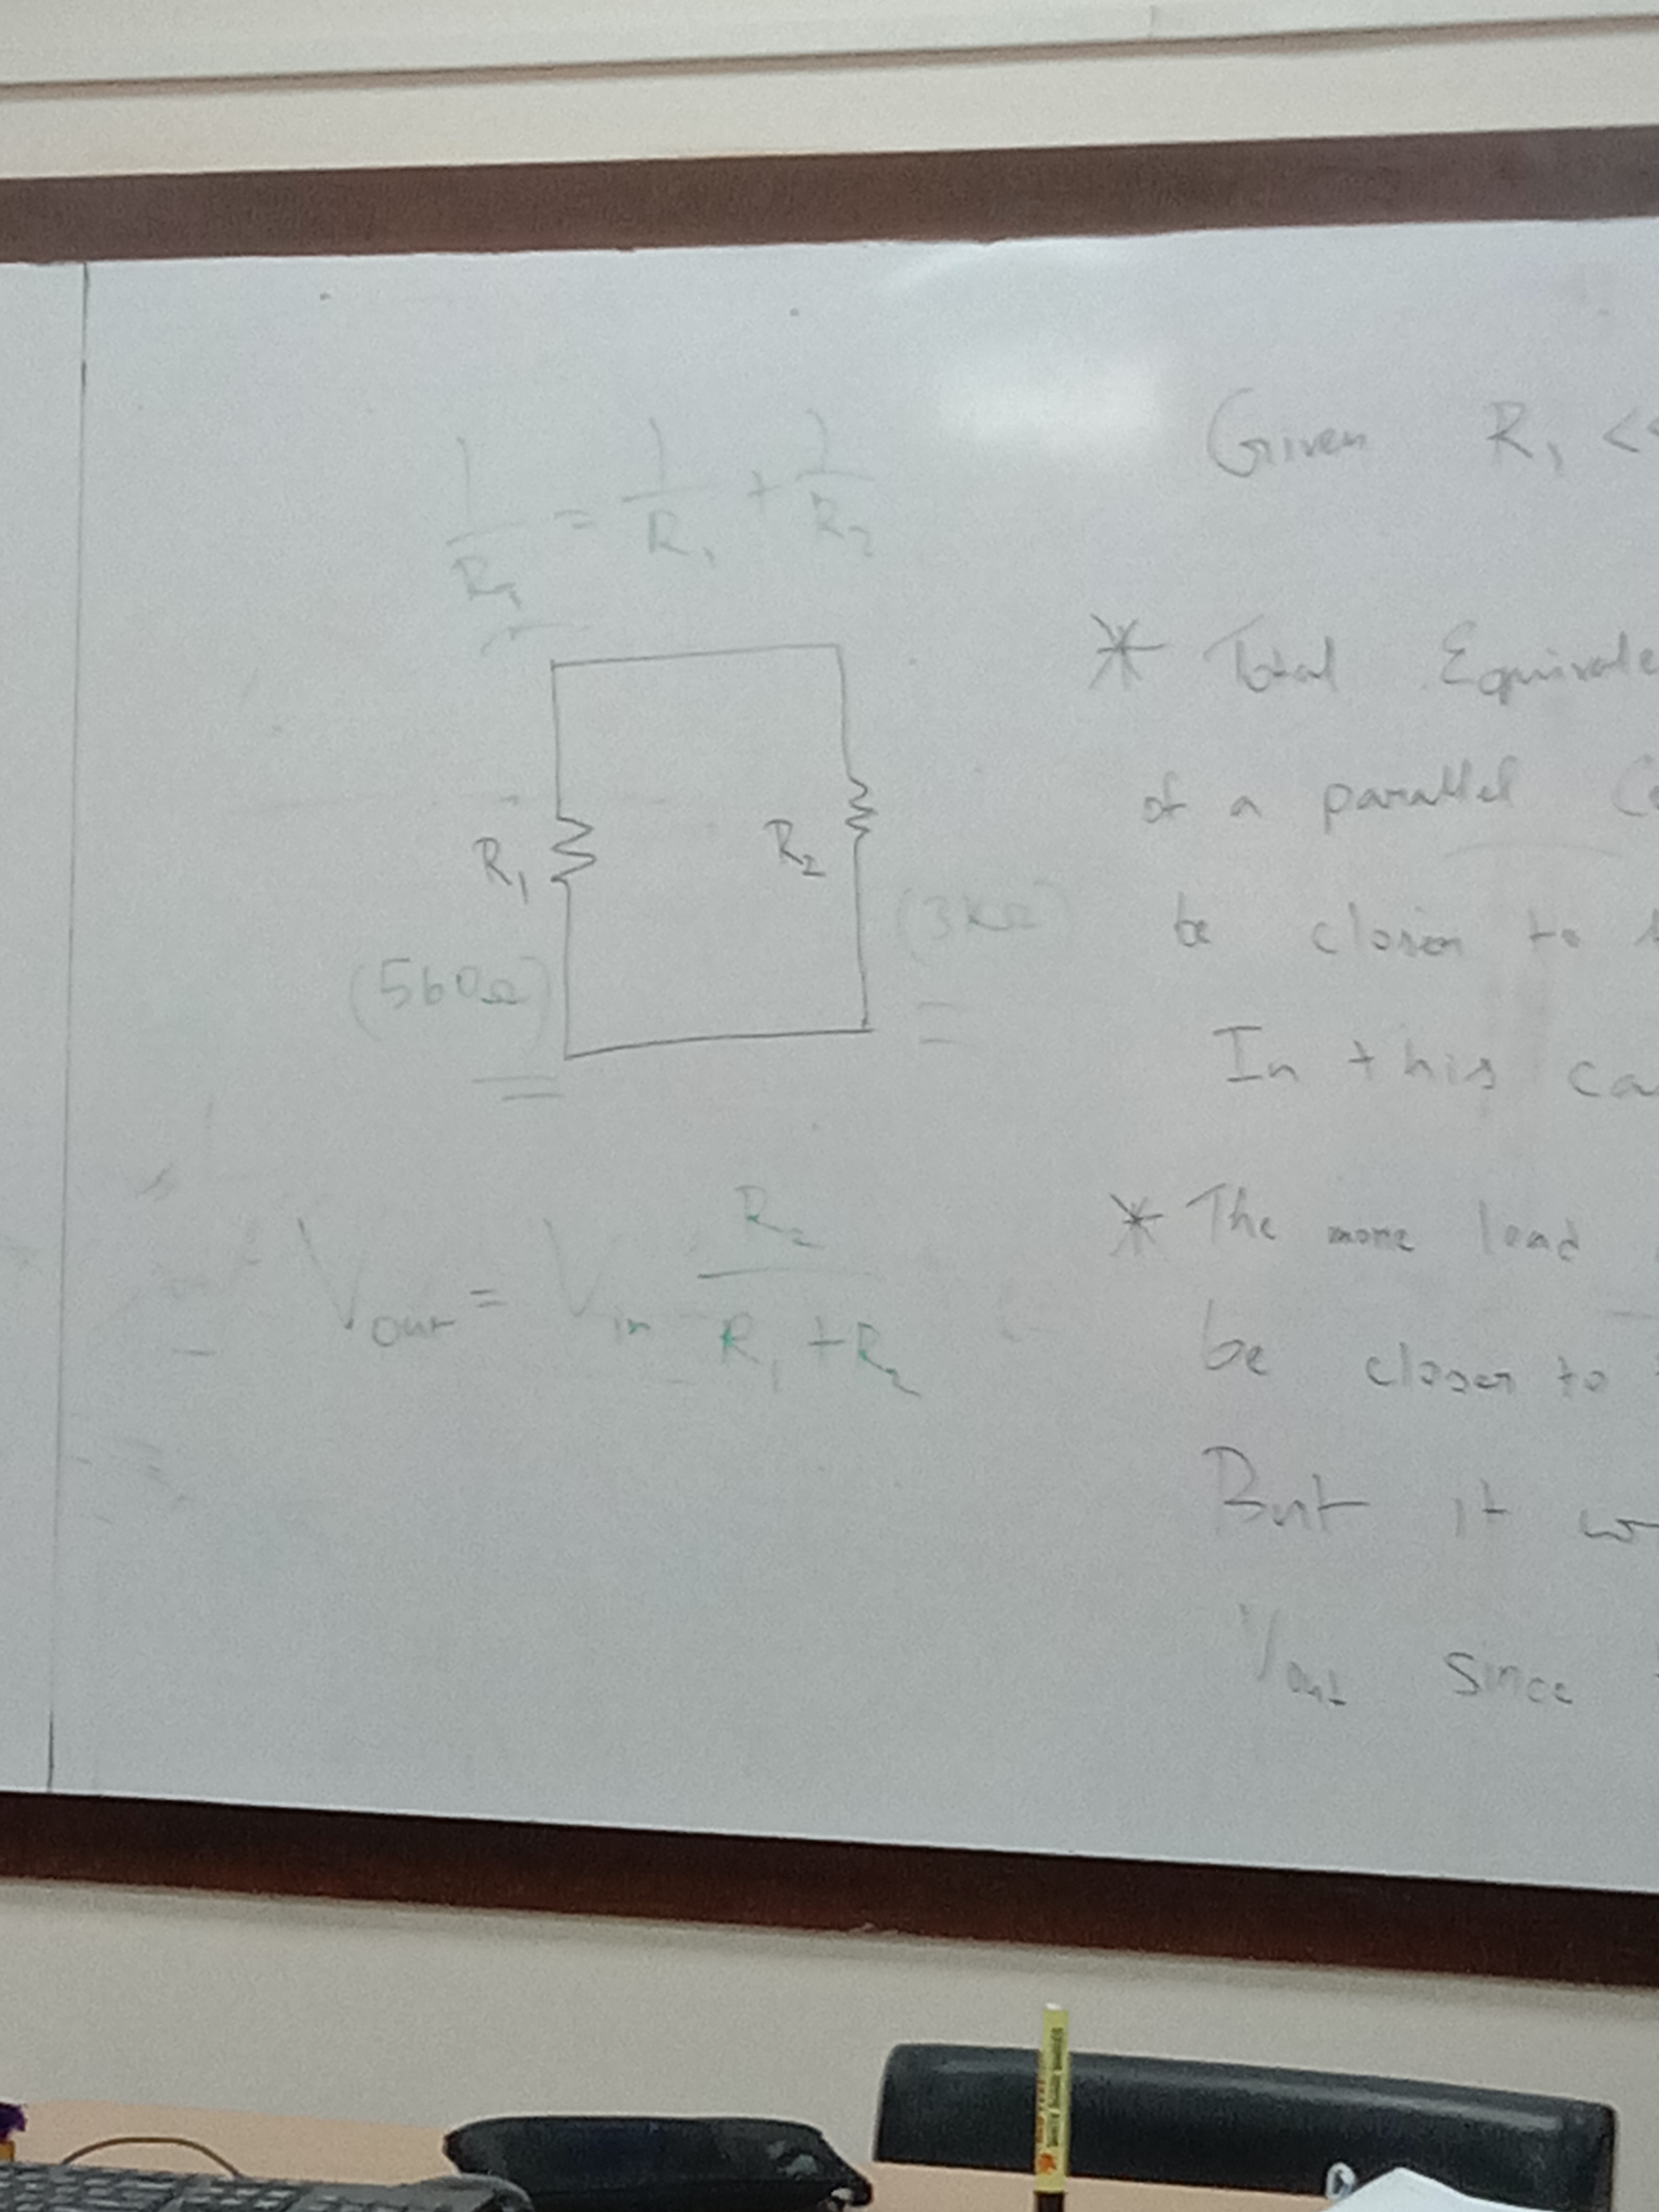 1/R_T = 1/R₁ + 1/R₂
R₁
R₂
(560Ω)
(3KΩ)
V_out = V_in R₂ / R₁ + R₂
Given R₁ <<
* Total Equivale
of a parallel
be closer to
In this ca
* The more load
be closer to
But it w
V_out since